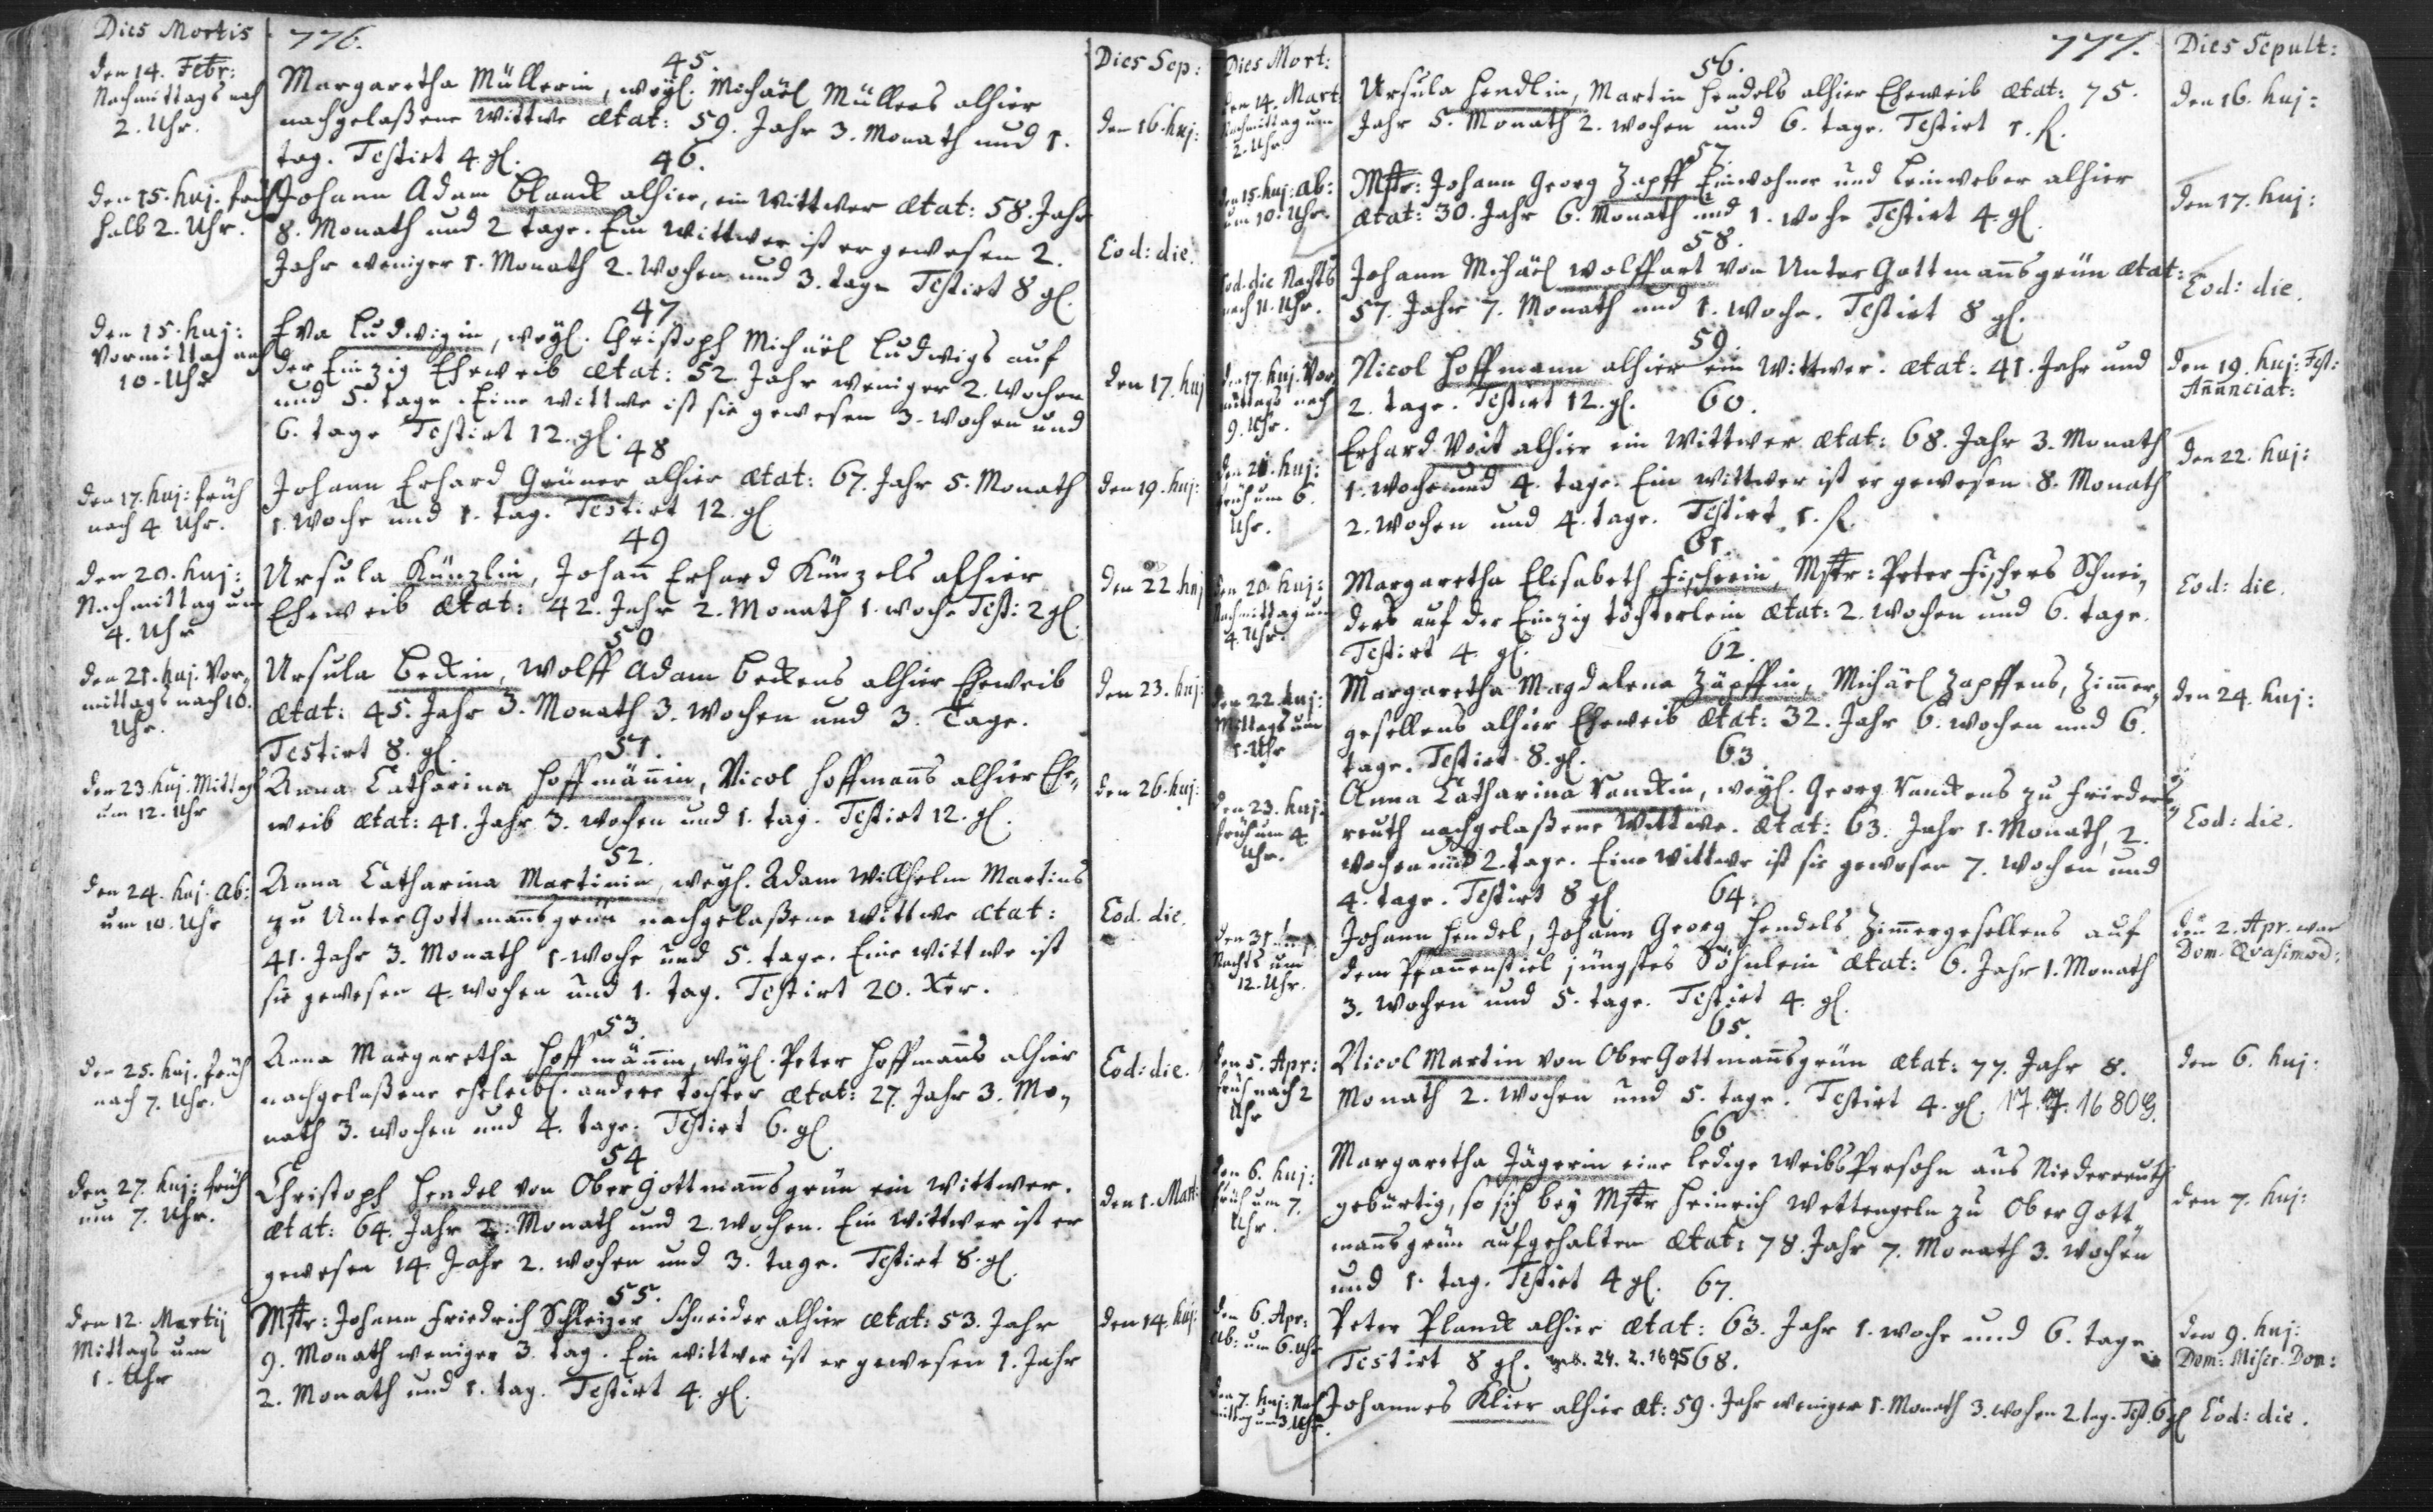 Dies Mortis
776.
Dies Sep:
45.
den 14. Febr:
Nachmittags nach
2. Uhr.
Margaretha Müllerin, weyl. Michäel Müllers alhier
nachgelaßene Wittwe ætat: 59. Jahr 3. Monath und 1.
tag. Testirt 4. gl.
den 16. huj:
46.
den 15. huj. früh
halb 2. Uhr.
Johann Adam Blanck alhier, ein Wittwer ætat: 58. Jahr
8. Monath und 2 tage. Ein Wittwer ist er gewesen 2.
Jahr weniger 1. Monath 2. Wochen und 3. tage Testirt 8 gl.
Eod: die.
47
den 15. huj:
Vormittag nach
10. Uhr
Eva Ludwigin, weyl. Christoph Michäel Ludwigs auf
der Einzig Eheweib ætat: 52. Jahr weniger 2. Wochen
und 5. tage. Eine Wittwe ist sie gewesen 3. Wochen und
6. tage Testirt 12. gl.
den 17. huj
48
den 17. huj: früh
nach 4 Uhr.
Johann Erhard Grüner alhier ætat: 67. Jahr 5. Monath
1. Woche und 1. tag. Testirt 12. gl
den 19. huj:
49
den 20. huj:
Nachmittag um
4. Uhr
Ursula Künzlin, Johann Erhard Künzels alhier
Eheweib ætat: 42. Jahr 2. Monath 1. Woche Test: 2 gl.
den 22 huj
50
den 21. huj. Vor-
mittags nach 10.
Uhr.
Ursula Beckin, Wolff Adam Beckens alhier Eheweib
ætat: 45. Jahr 3. Monath 3. Wochen und 3. Tage.
Testirt 8. gl.
den 23. huj:
51.
den 23. huj. Mittags
um 12. Uhr
Anna Catharina Hoffmännin, Nicol Hoffmanns alhier Ehe-
weib ætat: 41. Jahr 3. Wochen und 1. tag. Testirt 12. gl.
den 26. huj:
52.
den 24. huj. Ab:
um 10. Uhr
Anna Catharina Martinin, weyl. Adam Willhelm Martins
zu UnterGottmannsgrün nachgelaßene Wittwe ætat:
41. Jahr 3. Monath 1. Woche und 5. tage. Eine Wittwe ist
sie gewesen 4. Wochen und 1. tag. Testirt 20. Xer.
Eod. die.
53.
den 25. huj. früh
nach 7. Uhr.
Anna Margaretha Hoffmännin, weyl. Peter Hoffmanns alhier
nachgelaßene ehleibl. andere tochter ætat: 27. Jahr 3. Mo-
nath 3. Wochen und 4. tage. Testirt 6. gl
Eod: die.
54
den 27. huj: früh
um 7. Uhr.
Christoph Hendel von OberGottmannsgrün ein Wittwer.
ætat: 64. Jahr 2. Monath und 2. Wochen. Ein Wittwer ist er
gewesen 14. Jahr 2. Wochen und 3. tage. Testirt 8. gl.
den 1. Mart:
55.
den 12. Martij
Mittags um
1. Uhr
Mstr: Johann Friedrich Schleizer Schneider alhier ætat: 53. Jahr
9. Monath weniger 3. tag. Ein Wittwer ist er gewesen 1. Jahr
2. Monath und 1. tag. Testirt 4. gl.
den 14. huj:
Dies Mort:
777.
Dies Sepult:
56.
den 14. Mart
Nachmittag um
2. Uhr
Ursula Hendlin, Martin Hendels alhier Eheweib ætat: 75.
Jahr 5. Monath 2. Wochen und 6. tage. Testirt 1. fl.
den 16. huj:
57.
den 15. huj: Ab:
um 10. Uhr.
Mstr: Johann Georg Zapff Einwohner und Leinweber alhier
ætat: 30. Jahr 6. Monath und 1. Woche Testirt 4. gl.
den 17. huj:
58.
Eod. die Nachts
nach 11. Uhr.
Johann Michäel Wolffart von UnterGottmannsgrün ætat:
57. Jahr 7. Monath und 1. Woche. Testirt 8 gl.
Eod: die.
59.
den 17. huj. Vor-
mittags nach
9. Uhr.
Nicol Hoffmann alhier ein Wittwer. ætat: 41. Jahr und
2. tage. Testirt 12. gl.
den 19. huj: Fest:
Annunciat:
60.
den 21. huj:
früh um 6.
Uhr.
Erhard Voit alhier ein Wittwer ætat: 68. Jahr 3. Monath
1. Woche und 4. tage. Ein Wittwer ist er gewesen 8. Monath
2. Wochen und 4. tage. Testirt 1. fl.
den 22. huj:
61.
den 20. huj:
Nachmittag um
4. Uhr.
Margaretha Elisabeth Fischerin, Mstr: Peter Fischers Schnei-
ders auf der Einzig töchterlein ætat: 2. Wochen und 6. tage.
Testirt 4. gl.
Eod: die.
62.
den 22. huj:
Mittags um
1. Uhr
Margaretha Magdalena Zäpffin, Michäel Zapffens, Zimmer-
gesellens alhier Eheweib ætat: 32. Jahr 6. Wochen und 6.
tage. Testirt 8. gl.
den 24. huj:
63
den 23. huj.
früh um 4
Uhr.
Anna Catharina Vanckin, weyl. Georg Vanckens zu Frieders-
reuth nachgelaßene Wittwe. ætat: 63. Jahr 1. Monath, 2.
Wochen und 2. tage. Eine Wittwe ist sie gewesen 7. Wochen und
4. tage. Testirt 8 gl
Eod: die.
64.
den 31. huj
Nachts um
12. Uhr.
Johann Hendel, Johann Georg Hendels Zimmergesellens auf
dem Pfannenstiel jüngstes Söhnlein ætat: 6. Jahr 1. Monath
3. Wochen und 5. tage. Testirt 4. gl.
den 2. Apr. war
Dom. Qvasimod:
65.
den 5. Apr:
früh nach 2
Uhr
Nicol Martin von OberGottmannsgrün ætat: 77. Jahr 8.
Monath 2. Wochen und 5. tage. Testirt 4. gl. 17. 7. 1680
den 6. huj:
66
den 6. huj:
früh um 7.
Uhr.
Margaretha Jägerin eine ledige WeibsPersohn aus Niederreuth
gebürtig, so sich bey Mstr Heinrich Wettengeln zu OberGott-
mannsgrün aufgehalten ætat: 78. Jahr 7. Monath 3. Wochen
und 1. tag. Testirt 4 gl.
den 7. huj:
67.
den 6. Apr:
Ab: um 6. Uhr
Peter Planck alhier ætat: 63. Jahr 1. Woche und 6. tage
Testirt 8 gl. geb. 24. 2. 1695
den 9. huj:
Dom: Miser. Dom:
68.
den 7. huj: Nach
mittag um 3. Uhr.
Johannes Klier alhier æt: 59. Jahr weniger 1. Monath 3. Wochen 2. tag. Test. 6 gl
Eod: die.